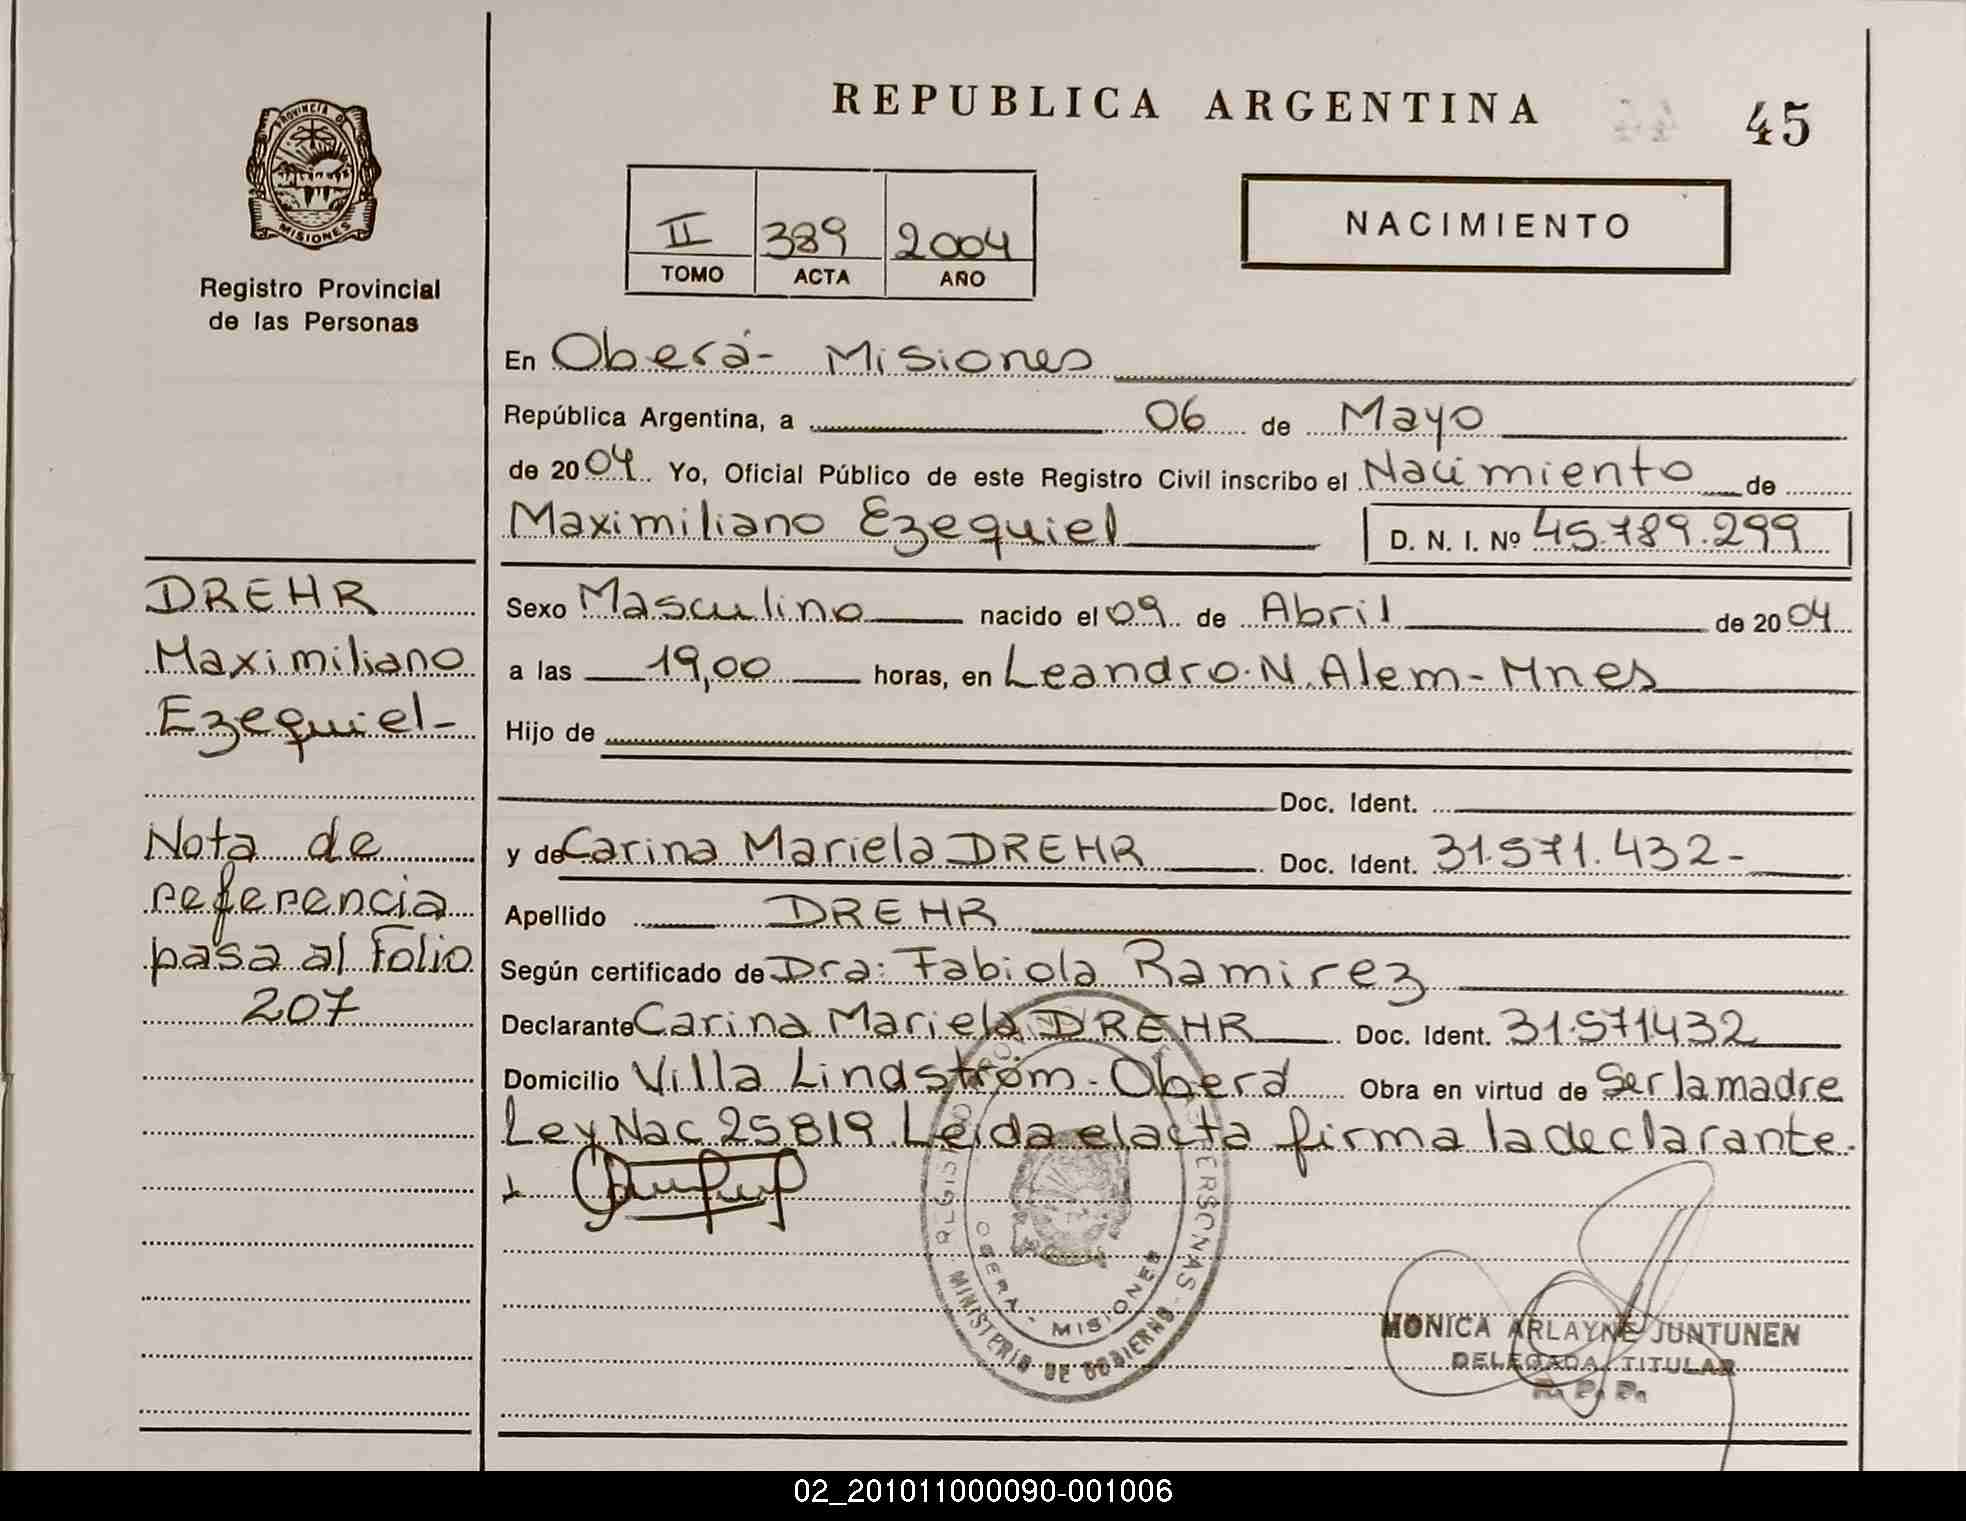 REPUBLICA ARGENTINA
45
PROVINCIA DE
MISIONES
Registro Provincial
de las Personas
II 389 2004
TOMO ACTA AÑO
NACIMIENTO
En Oberá - Misiones
República Argentina, a 06 de Mayo
de 2004 Yo, Oficial Público de este Registro Civil inscribo el Nacimiento de
Maximiliano Ezequiel D. N. I. Nº 45.789.299
DREHR
Maximiliano
Ezequiel-
Nota de
referencia
pasa al Folio
207
Sexo Masculino nacido el 09 de Abril de 2004
a las 19,00 horas, en Leandro. N. Alem - Mnes
Hijo de
Doc. Ident.
y de Carina Mariela DREHR Doc. Ident. 31.571.432-
Apellido DREHR
Según certificado de Dra: Fabiola Ramirez
Declarante Carina Mariela DREHR Doc. Ident. 31.571432
Domicilio Villa Lindström - Oberá Obra en virtud de Ser la madre
Ley Nac 25819 Leida el acta firma la declarante.
OBERA - MISIONES
MINISTERIO DE GOBIERNO
MONICA ARLAYNE JUNTUNEN
DELEGADA TITULAR
R. P. P.
02_201011000090-001006